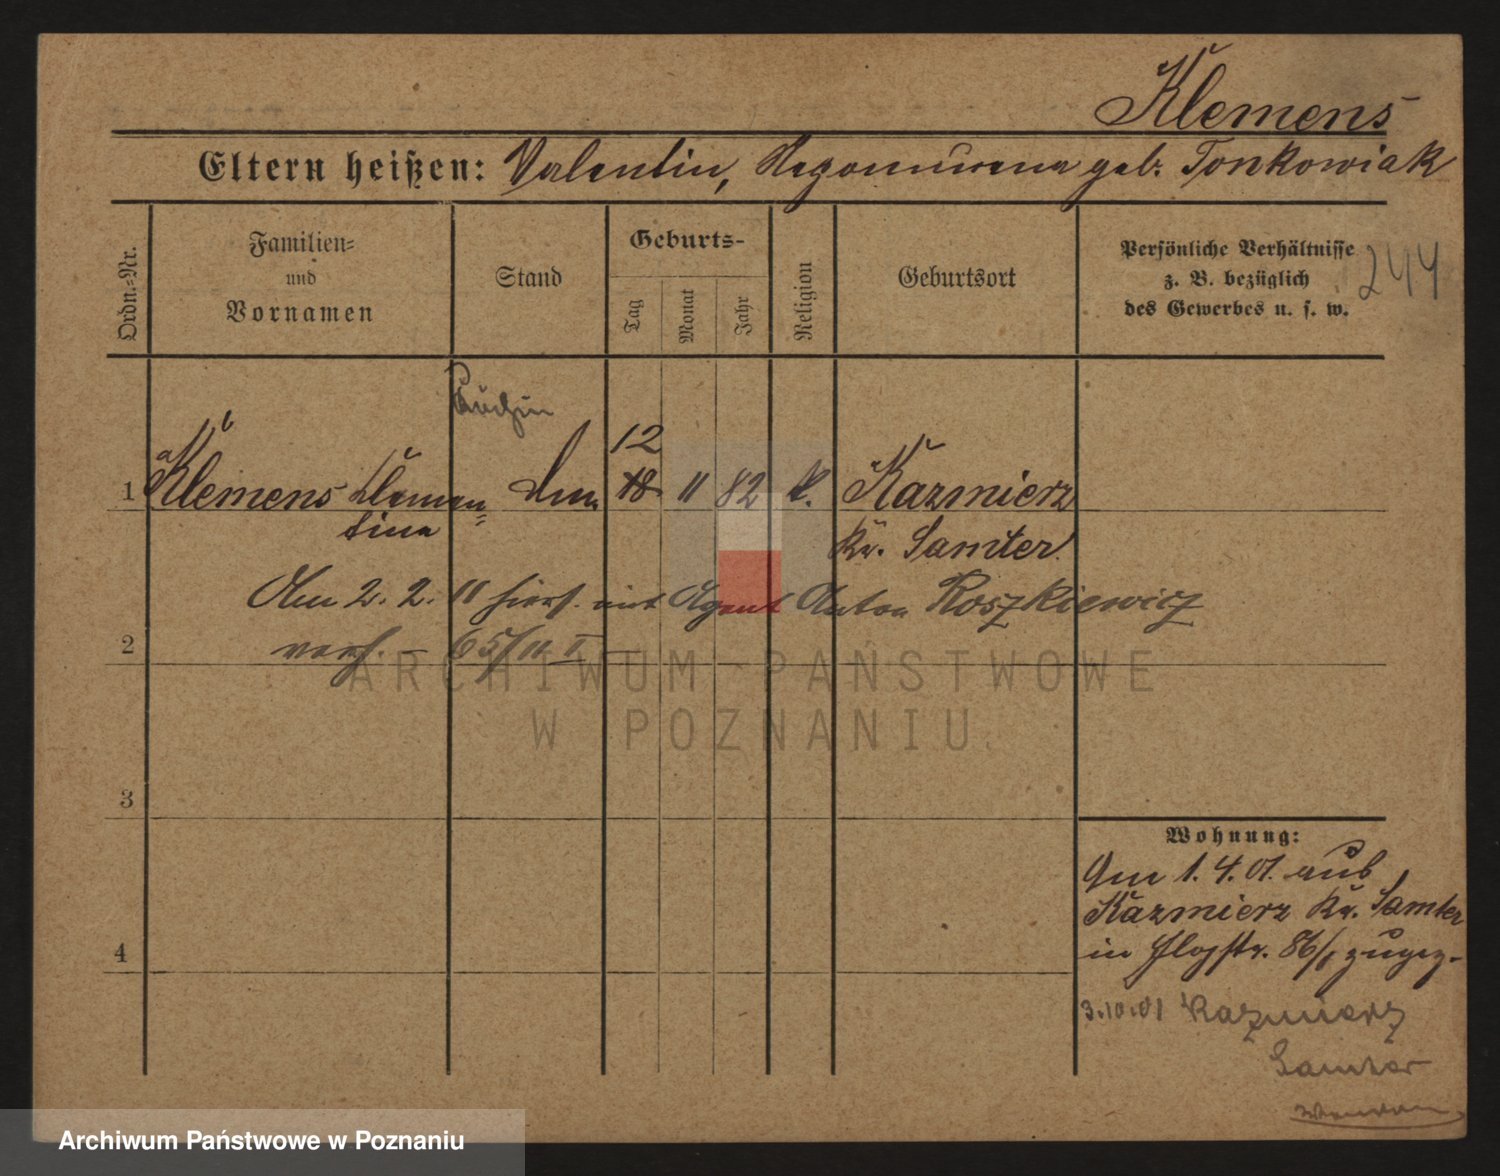 Klemens
Eltern heißen: Valentin, geb. Tonkowiak
Ordn.-Nr.
Familien-
und
Vornamen
Stand
Geburts-
Tag
Monat
Jahr
Religion
Geburtsort
Persönliche Verhältnisse
z. B. bezüglich
des Gewerbes u. s. w.
244
Köchin
12
1 Klemens Clemen= 18 11 82 k. Kazmierz
tina
Kr. Samter
Am 2. 2. 11 hier mit Agent Anton Roszkiewicz
2 verh. – 65/11 II
ARCHIWUM PAŃSTWOWE
W POZNANIU
3
Wohnung:
Am 1. 4. 01. aus
Kazmierz Kr. Samter
4 in 86/I zugez.
3.10.01 Kazmierz
Samter
Archiwum Państwowe w Poznaniu